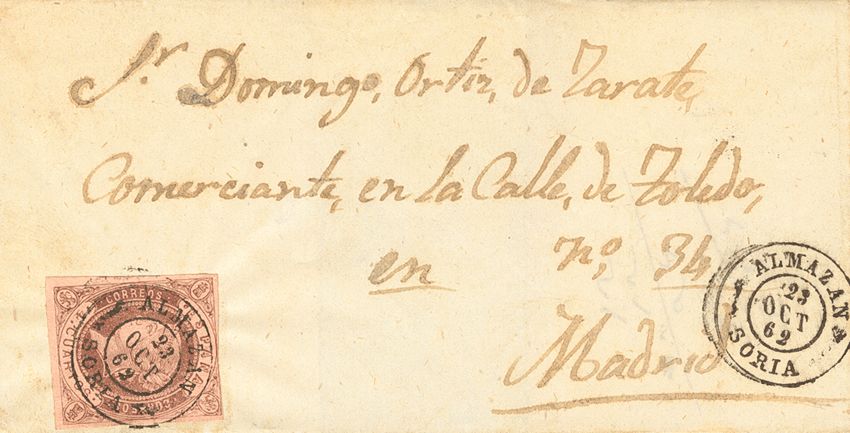 Sr. Domingo, Ortiz, de Zarate,
Comerciante, en la Calle, de Toledo,
en nº, 34
Madrid
ALMAZAN
23
OCT
62
SORIA
CORREOS
ALMAZAN
23
OCT
62
SORIA